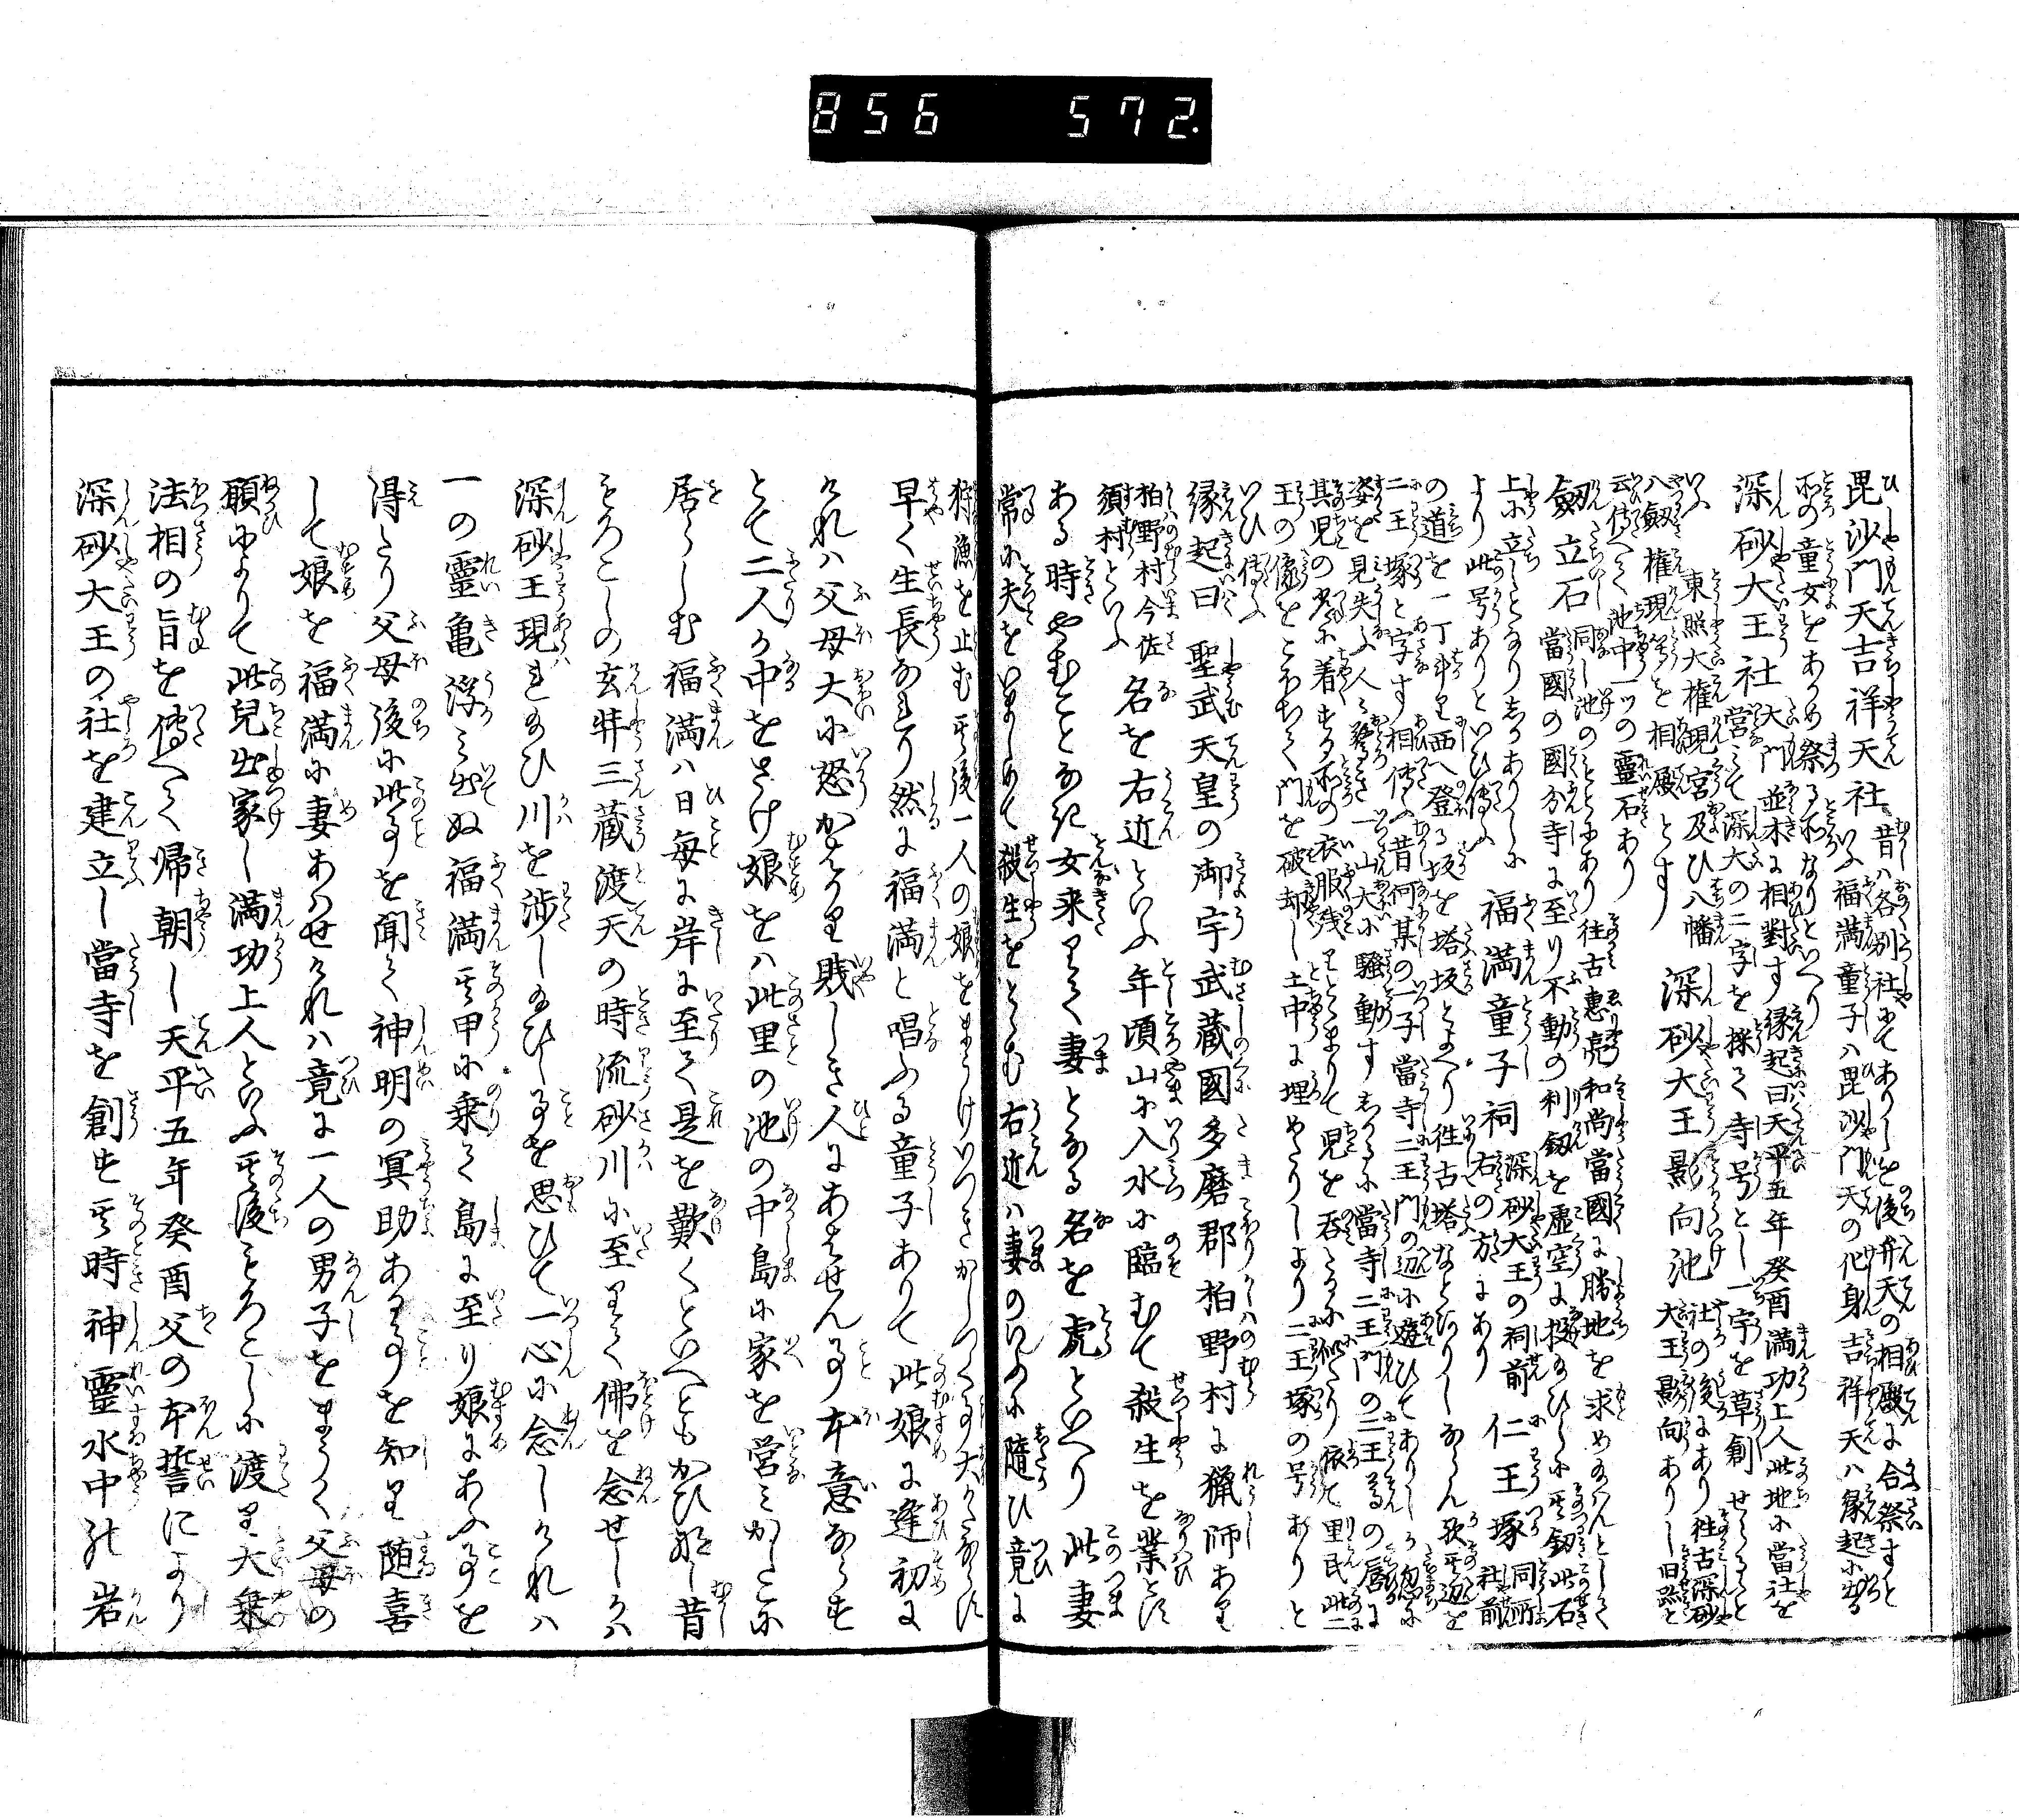 856 572.
毘沙門天吉祥天社 昔ハ各別社にてありしを後弁天の相殿に合祭すと
いふ福満童子ハ毘沙門天の化身吉祥天ハ縁起に出る
所の童女をあかめ祭る所なりといへり
深砂大王社 大門並木に相對す縁起曰天平五年癸酉満功上人此地に當社を
営みて深大の二字を採て寺号とし一宇を草創せらると
いふ 東照大権現宮及ひ八幡
八劔権現等を相殿とす 深砂大王影向池 社の後にあり往古深砂
大王影向ありし旧跡と
云伝へて池中一ツの霊石あり
劔立石 同し池のところにあり往古恵亮和尚當國に勝地を求め給はんとして
當國の國分寺に至り不動の利劔を虚空に投給ひしに其劔此石
上に立しとなりしかありしに
より此号ありといひ傳ふ 福満童子祠 深砂大王の祠前
右の方にあり 仁王塚 同所
社前
の道を一丁斗り西へ登る坂を塔坂とよへり往古塔なとありしならん歟其辺を
二王塚と字す相傳ふ昔何某の一子當寺二王門の辺に遊ひてありしか忽に
姿を見失ふ人々驚き一山大に騒動すしかるに當寺二王門の二王尊の唇に
其児の常に着する所の衣服残りとゝまりて児を呑たるに似たり依て里民此二
王の像をこほちて門を破却し土中に埋めたりしより二王塚の号ありと
いひ傳ふ
縁起曰 聖武天皇の御宇武蔵國多磨郡柏野村に猟師あり
柏野村今佐
須村といふ 名を右近といふ年頃山に入水に臨むて殺生を業とす
ある時やむことなき女来りて妻となる名を虎といへり 此妻
常に夫をいましめて殺生をとゝむ右近ハ妻のいさめに隨ひ竟に
狩漁を止む其後一人の娘をまうけいつきかしつく事大かたならす
早く生長なれり然に福満と唱ふる童子ありて此娘に逢初に
けれハ父母大に怒かゝる賤しき人にあはせん事本意ならす
とて二人か中をさけ娘をハ此里の池の中島に家を営みかしこに
居らしむ福満ハ日毎に岸に至て是を歎くといへともかひなし昔
もろこしの玄弉三蔵渡天の時流砂川に至りて佛を念せしかハ
深砂王現れ給ひ川を渉し給ひし事を思ひて一心に念しけれハ
一の靈亀浮み出ぬ福満其甲に乗て島に至り娘にあふ事を
得たり父母後に此事を聞て神明の冥助ある事を知り随喜
して娘を福満に妻あはせけれハ竟に一人の男子をまうく父母の
願によりて此兒出家し満功上人といふ其後もろこしに渡り大乗
法相の旨を傳へて帰朝し天平五年癸酉父の本誓により
深砂大王の社を建立し當寺を創す其時神靈水中の岩